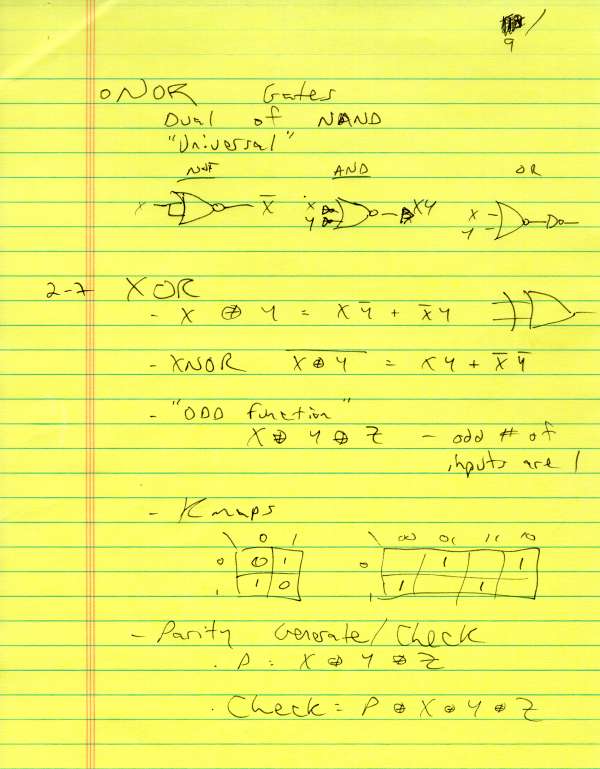 9
NOR Gates
Dual of NAND
"Universal"
NOT AND OR
X X̅ X Y XY X Y
2-7 XOR
- X ⊕ Y = X Y̅ + X̅ Y
- XNOR X̅ ⊕̅ Y̅ = XY + X̅ Y̅
- "ODD function"
X ⊕ Y ⊕ Z - odd # of
inputs are 1
- Kmaps
0 1 00 01 11 10
0 0 1 0 1 1
1 1 0 1 1 1
- Parity Generate/Check
. P = X ⊕ Y ⊕ Z
. Check = P ⊕ X ⊕ Y ⊕ Z